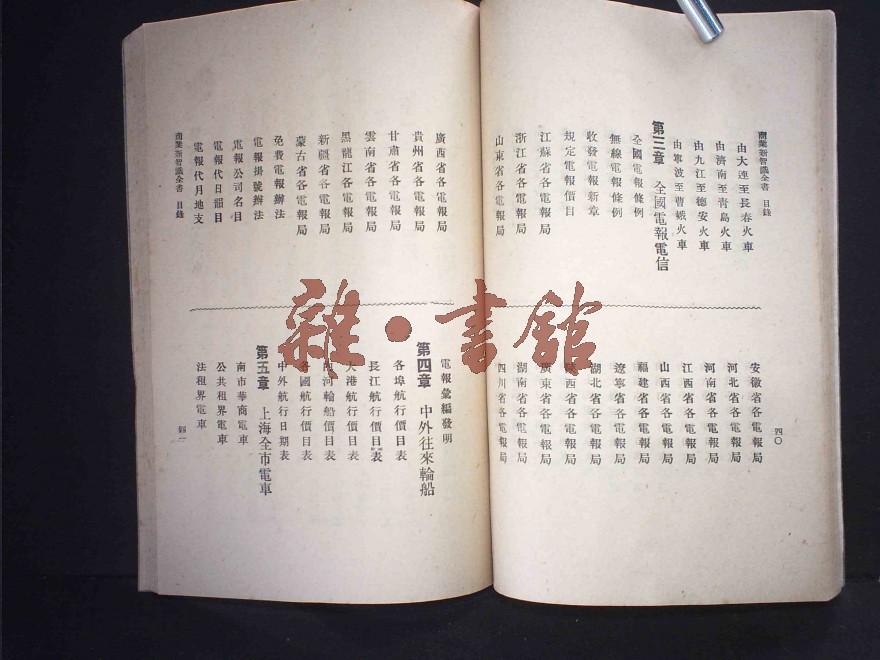 商業新智識全書 目錄
由大連至長春火車
由濟南至青島火車
由九江至德安火車
由寧波至曹娥火車
第三章 全國電報電信
全國電報條例
無線電報條例
收發電報新章
規定電報價目
江蘇省各電報局
浙江省各電報局
山東省各電報局
安徽省各電報局
河北省各電報局
河南省各電報局
江西省各電報局
山西省各電報局
福建省各電報局
遼寧省各電報局
湖北省各電報局
陝西省各電報局
廣東省各電報局
湖南省各電報局
四川省各電報局
四〇
廣西省各電報局
貴州省各電報局
甘肅省各電報局
雲南省各電報局
黑龍江各電報局
新疆省各電報局
蒙古省各電報局
免費電報辦法
電報掛號辦法
電報公司名目
電報代日韻目
電報代月地支
商業新智識全書 目錄
電報彙編發明
第四章 中外往來輪船
各埠航行價目表
長江航行價目表
大港航行價目表
內河輪船價目表
各國航行價目表
中外航行日期表
第五章 上海全市電車
南市華商電車
公共租界電車
法租界電車
四一
雜·書館